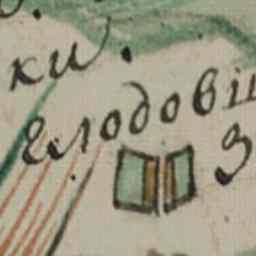 ки.
Елодовіи
З